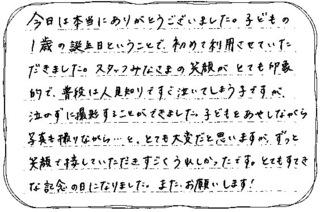 今日は本当にありがとうございました。子どもの
1歳の誕生日ということで、初めて利用させていた
だきました。スタッフみなさまの笑顔がとても印象
的で、普段は人見知りですぐ泣いてしまう子ですが、
泣かずに撮影することができました。子どもをあやしながら
写真を撮りながら…と、とても大変だと思いますが、ずっと
笑顔で接していただきすごくうれしかったです。とてもすてき
な記念の日になりました。また、お願いします!